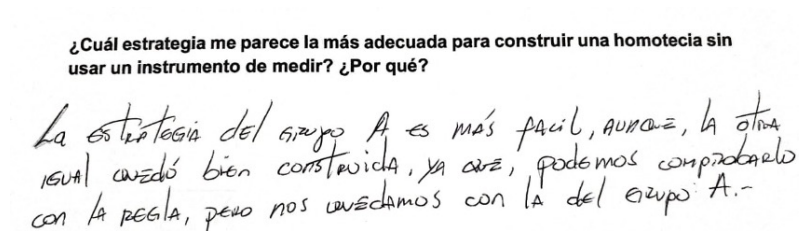 ¿Cuál estrategia me parece la más adecuada para construir una homotecia sin
usar un instrumento de medir? ¿Por qué?
La estrategia del grupo A es más facil, aunque, la otra
igual quedó bien construida, ya que, podemos comprobarlo
con la regla, pero nos quedamos con la del grupo A.-